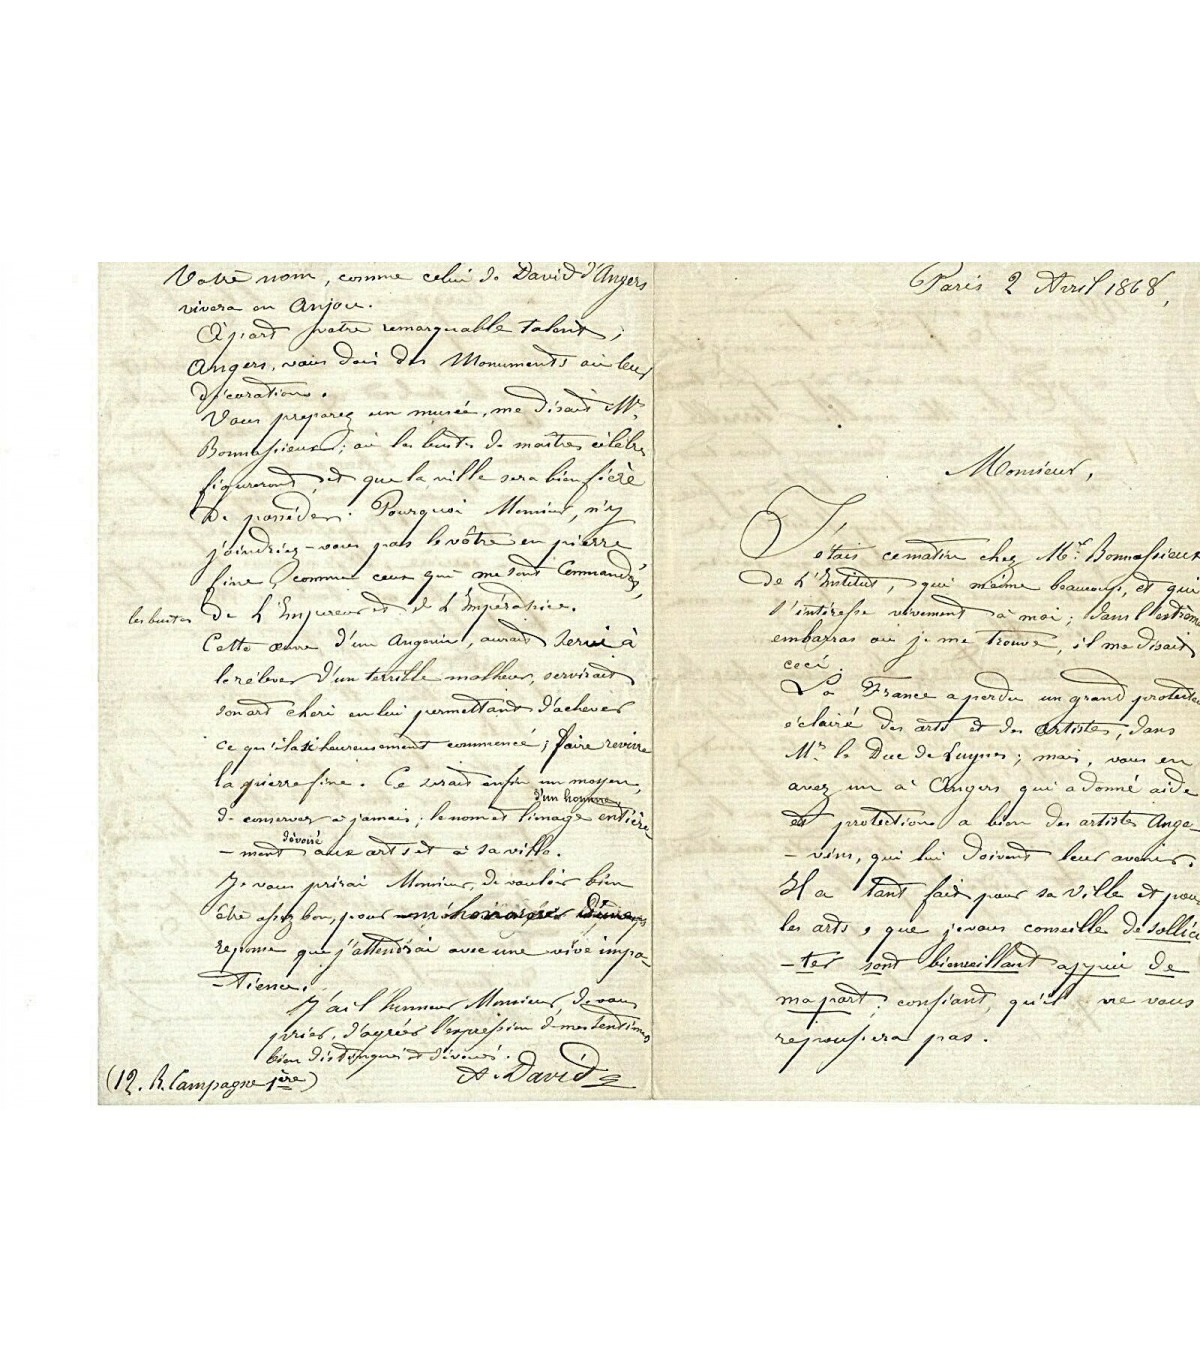 Paris 2 Avril 1868,
Monsieur,
J'étais ce matin chez Mr. Bonnassieux
de l'Institut, qui m'aime beaucoup, et qui
s'intéresse vivement à moi ; dans l'extrême
embarras où je me trouve, il me disait
ceci.
La France a perdu un grand protecteu
éclairé des arts et des artistes, dans
Mr. le Duc de Luynes ; mais, vous en
avez un à Angers qui a donné aide
et protection a bien des artistes Ange-
-vins, qui lui doivent leur avenir.
Il a tant fait pour sa ville et pour
les arts, que je vous conseille de sollici
-ter sont bienveillant appui de
ma part, confiant, qu'il ne vous
repoussera pas.
Votre nom, comme celui de David d'Angers
vivera en Anjou.
À part votre remarquable talent,
Angers, vous doit des Monuments où leur
décorations.
Vous preparez un musée, me disait Mr.
Bonnassieux ; où les bustes de maîtres célèbre
figureront, et que la ville sera bien fière
de posséder. Pourquoi Monsieur, n'y
joindriez-vous pas le vôtre en pierre
fine, comme ceux qui me sont Commandés,
les bustes de L'Empereur et de L'Impératrice.
Cette œuvre d'un Angevin, aurait servi à
le relever d'un terrible malheur, servirait
son art cheri en lui permettant d'achever
ce qu'il a si heureusement commencé ; faire revivre
la pierre fine. Ce serait enfin un moyen,
de conserver a jamais, le nom et l'image d'un homme, entière-
-ment dévoué aux arts et à sa ville.
Je vous prirai Monsieur, de vouloir bien
être assez bon, pour
reponse que j'attendrai avec une vive impa-
-tience.
J'ai l'honneur Monsieur, de vous
prier, d'agréer l'expression de mes sentiments
bien distingués et dévoués.
A. David
(12. R. Campagne 1ère)